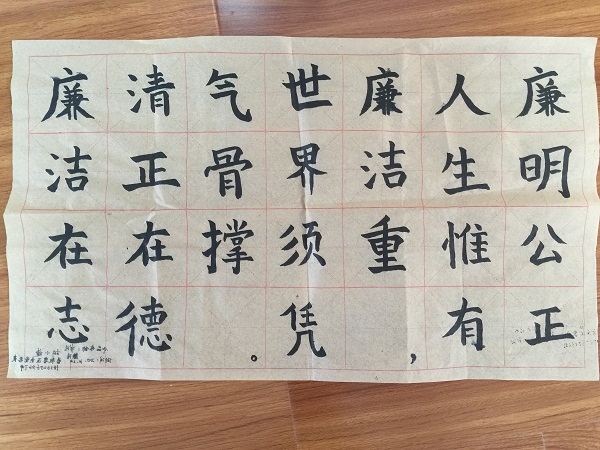 廉明公正
人生惟有
廉洁重，
世界须凭
气骨撑。
清正在德
廉洁在志